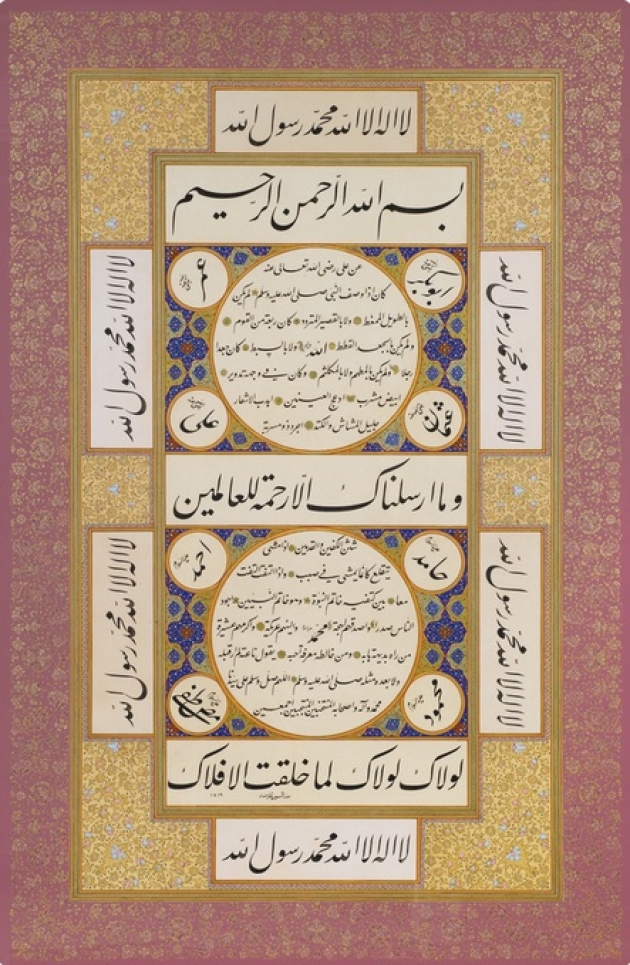 لا اله الا الله محمد رسول الله
بسم الله الرحمن الرحيم
ابوبكر
عمر
عن على رضى الله تعالى عنه
كان اذا وصف النبى صلى الله عليه وسلم لم يكن
بالطويل الممغط ولا بالقصير المتردد كان ربعة من القوم
ولم يكن بالجعد القطط الله ولا بالسبط كان جعدا
رجلا ولم يكن بالمطهم ولا بالمكلثم وكان فى وجهه تدوير
ابيض مشرب ادعج العينين اهدب الاشفار
جليل المشاش والكتد اجرد ذو مسربة
عثمان
على
لا اله الا الله محمد رسول الله
لا اله الا الله محمد رسول الله
وما ارسلناك الا رحمة للعالمين
حامد
احمد
شثن الكفين والقدمين اذا مشى
يتقلع كانما يمشى فى صبب واذا التفت التفت
معا بين كتفيه خاتم النبوة وهو خاتم النبيين اجود
الناس صدرا واصدقهم لهجة محمد والينهم عريكة واكرمهم عشيرة
من راه بديهة هابه ومن خالطه معرفة احبه يقول ناعته لم ار قبله
ولا بعده مثله صلى الله عليه وسلم اللهم صل وسلم على سيدنا
محمد وآله واصحابه اجمعين
محمود
مصطفى
لا اله الا الله محمد رسول الله
لا اله الا الله محمد رسول الله
لولاك لولاك لما خلقت الافلاك
لا اله الا الله محمد رسول الله